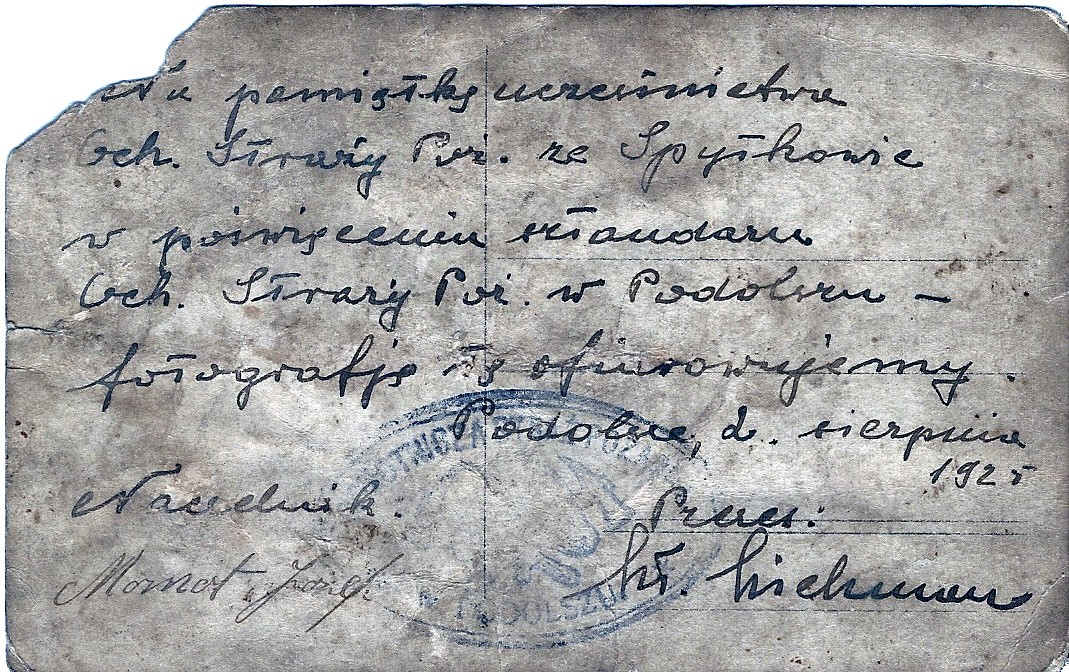 Na pamiątkę uczestnictwa
Och. Straży Poż. ze Spytkowic
w poświęceniu sztandaru
Och. Straży Poż. w Podolszu –
fotografję tę ofiarowujemy.
Podolsze, 2. sierpnia
1925
Naczelnik. Prezes:
Józef
W PODOLSZU